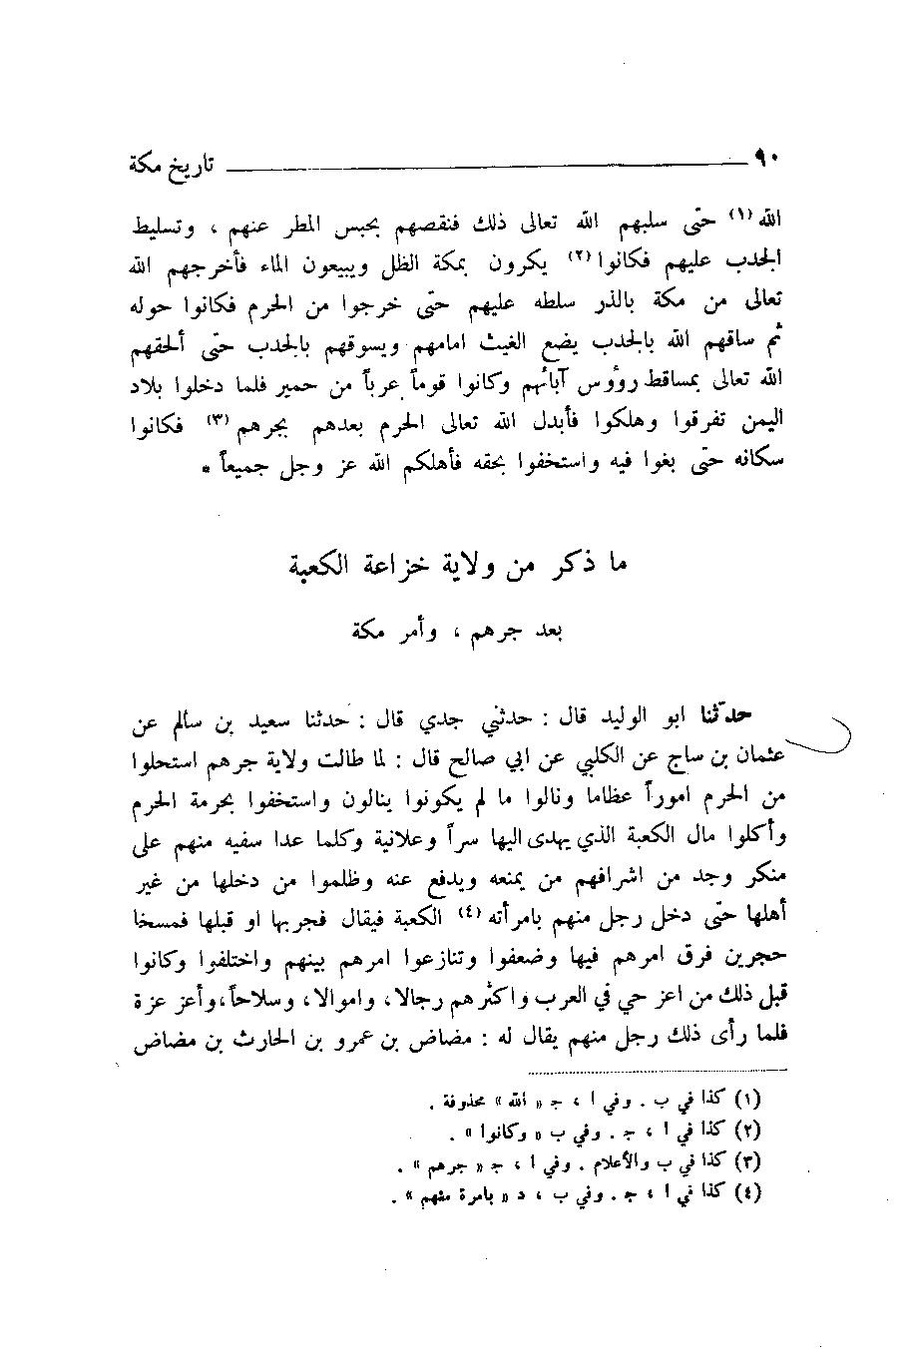 ٩٠ تاريخ مكة
الله (١) حتى سلبهم الله تعالى ذلك فنقصهم بحبس المطر عنهم ، وتسليط
الجدب عليهم فكانوا (٢) يكرون بمكة الظل ويبيعون الماء فأخرجهم الله
تعالى من مكة بالذر سلطه عليهم حتى خرجوا من الحرم فكانوا حوله
ثم ساقهم الله بالجدب يضع الغيث امامهم ويسوقهم بالجدب حتى ألحقهم
الله تعالى بمساقط رؤوس آبائهم وكانوا قوماً عرباً من حمير فلما دخلوا بلاد
اليمن تفرقوا وهلكوا فأبدل الله تعالى الحرم بعدهم بجرهم (٣) فكانوا
سكانه حتى بغوا فيه واستخفوا بحقه فأهلكم الله عز وجل جميعاً *
ما ذكر من ولاية خزاعة الكعبة
بعد جرهم ، وأمر مكة
حدثنا ابو الوليد قال : حدثني جدي قال : حدثنا سعيد بن سالم عن
عثمان بن ساج عن الكلبي عن ابي صالح قال : لما طالت ولاية جرهم استحلوا
من الحرم اموراً عظاما ونالوا ما لم يكونوا ينالون واستخفوا بحرمة الحرم
وأكلوا مال الكعبة الذي يهدى اليها سراً وعلانية وكلما عدا سفيه منهم على
منكر وجد من اشرافهم من يمنعه ويدفع عنه وظلموا من دخلها من غير
أهلها حتى دخل رجل منهم بامرأته (٤) الكعبة فيقال فجربها او قبلها فمسخا
حجرين فرق امرهم فيها وضعفوا وتنازعوا امرهم بينهم واختلفوا وكانوا
قبل ذلك من اعز حي في العرب واكثرهم رجالا، واموالا، وسلاحاً، وأعز عزة
فلما رأى ذلك رجل منهم يقال له : مضاض بن عمرو بن الحارث بن مضاض
(١) كذا في ب . وفي ا ، ج « الله » محذوفة .
(٢) كذا في ا ، ج . وفي ب « وكانوا » .
(٣) كذا في ب والأعلام . وفي ا ، ج « جرهم » .
(٤) كذا في ا ، ج . وفي ب ، د « بامرة منهم » .